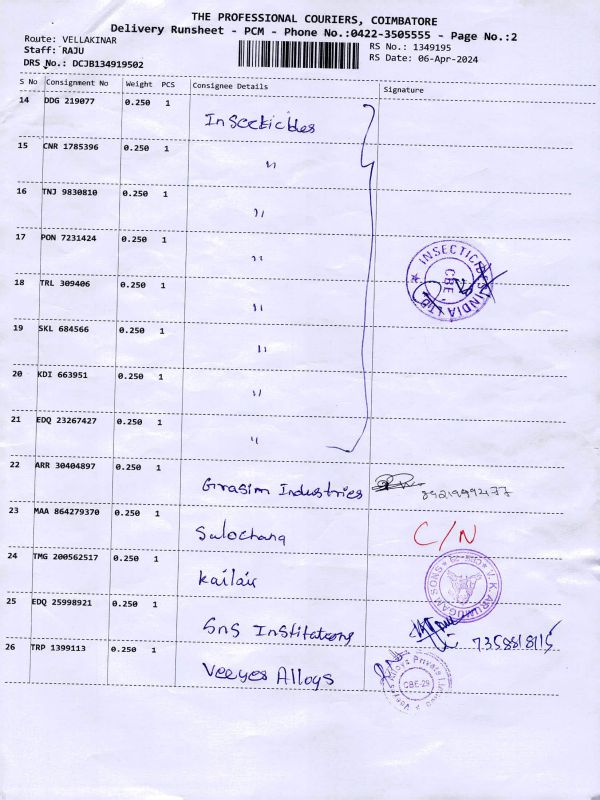 THE PROFESSIONAL COURIERS, COIMBATORE
Delivery Runsheet - PCM - Phone No.:0422-3505555 - Page No.:2
Route: VELLAKINAR
Staff: RAJU
DRS No.: DCJB134919502
RS No.: 1349195
RS Date: 06-Apr-2024
S No Consignment No Weight PCS Consignee Details Signature
14 DDG 219077 0.250 1 Insecticides
15 CNR 1785396 0.250 1 "
16 TNJ 9830810 0.250 1 "
17 PON 7231424 0.250 1 "
INSECTICIDES INDIA LTD
CBE
18 TRL 309406 0.250 1 "
19 SKL 684566 0.250 1 "
20 KDI 663951 0.250 1 "
21 EDQ 23267427 0.250 1 "
22 ARR 30404897 0.250 1 Grasim Industries
23 MAA 864279370 0.250 1 Sulochana C/N
24 TMG 200562517 0.250 1 Kailair
V.K. ARUMUGAM SONS
25 EDQ 25998921 0.250 1 Sns Institations
26 TRP 1399113 0.250 1 Veeyes Alloys
CBE-29